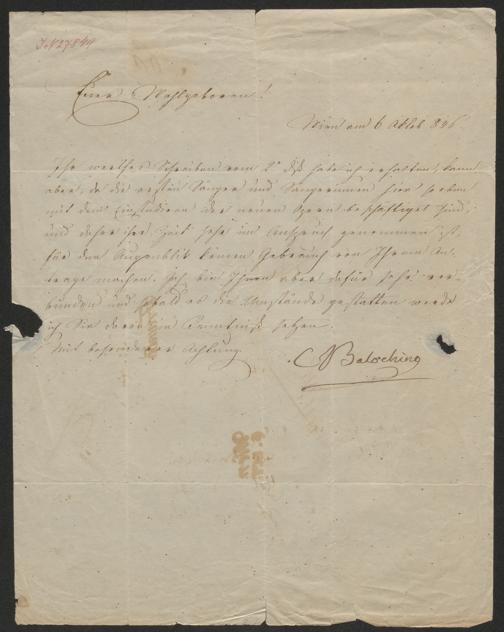 I.N. 27844
Euer Wohlgeboren!
Wien am 6 Octob 846
Ihr werthes Schreiben vom 2t dß habe ich erhalten, kann
aber, da die ersten Sänger und Sängerinnen hier so eben
mit dem Einstudieren der neuen Opern beschäftiget sind,
und daher ihre Zeit sehr in Anspruch genommen ist,
für den Augenblick keinen Gebrauch von Ihrem An-
trage machen. Ich bin Ihnen aber dafür sehr ver-
bunden und sobald es die Umstände gestatten werde
ich Sie davon in Kenntniß setzen.
Mit besonderer Achtung
Balochino